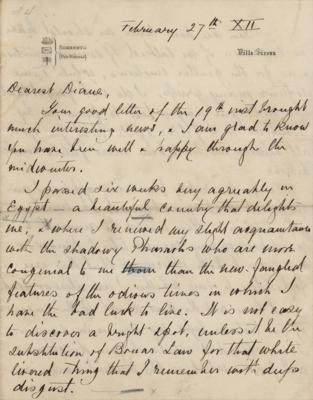 February 27th XII
SORRENTO
Villa Siracu
Dearest Diane,
Your good letter of the 19th inst brought
much interesting news, & I am glad to know
you have been well & happy through the
midwinter.
I passed six weeks very agreeably in
Egypt - a beautiful country that delights
me, & where I renewed my slight acquaintance
with the shadowy Pharaohs who are more
congenial to me than the new-fangled
features of the odious times in which I
have the bad luck to live. It is not easy
to discover a bright spot, unless it be the
substitution of Bonar Law for that white
livered thing that I remember with deep
disgust.